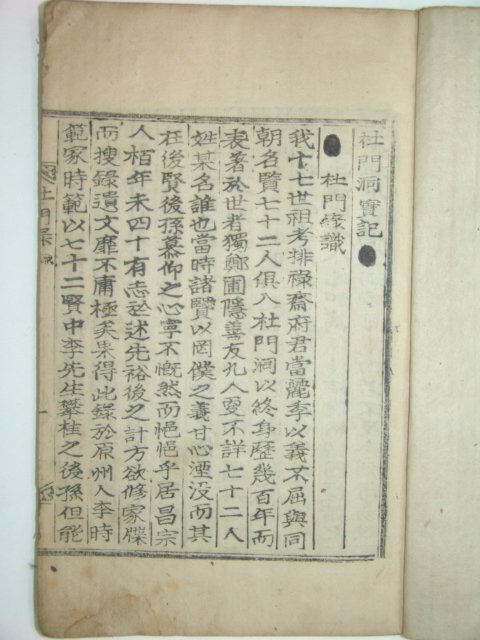 杜門洞實記
杜門後識
我十七世祖考排祿齋府君當麗季以義不屈與同
朝名賢七十二人俱入杜門洞以終身歷幾百年而
表著於世者獨鄭圃隱善友九人耍不詳七十二人
姓某名誰也當時諸賢以罔僕之義甘心湮没而其
在後賢後孫慕仰之心寧不慨然而悒悒乎居昌宗
人栢年未四十有志於述先裕後之計方欲修家牒
而搜錄遺文靡不庸極矣果得此錄於原州人李時
範家時範以七十二賢中李先生攀桂之後孫但能
杜門
一